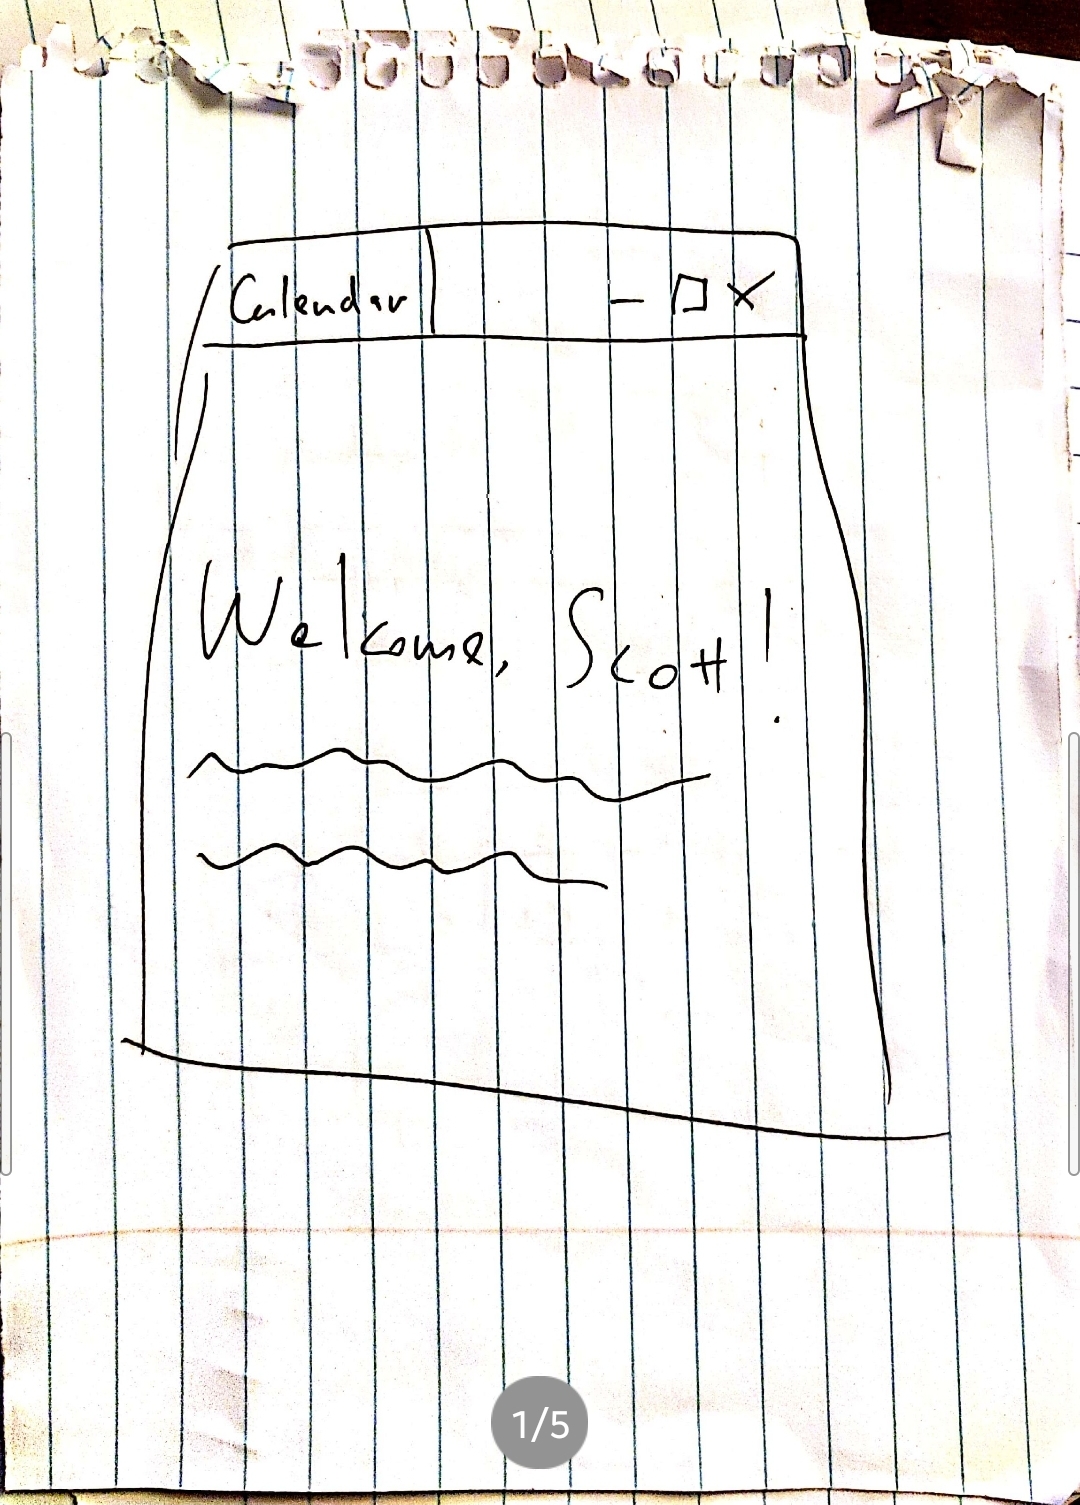 Calendar
Welcome, Scott!
1/5